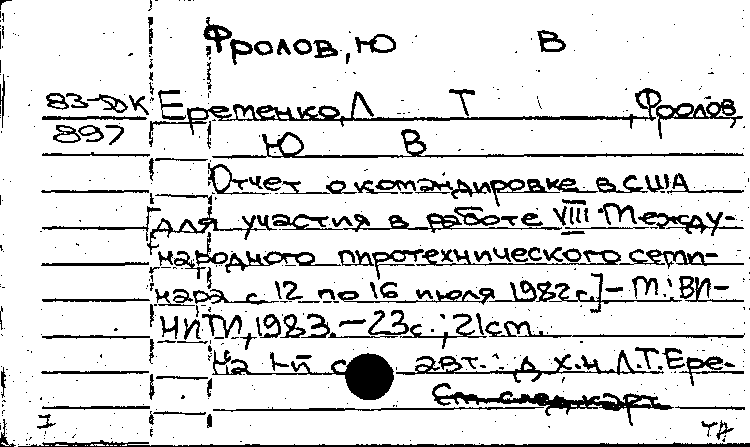 Фролов, Ю В
83-5DK Еременко, Л Т , Фролов,
897 Ю В
Отчет о командировке в США
[для участия в работе VIII Между-
народного пиротехнического семи-
нара с 12 по 16 июля 1982 г.] - М.: ВИ-
НИТИ, 1983. - 23 с.; 21 cm.
На 1-й с авт.: д. х. н Л. Т. Ере-
См след карт.